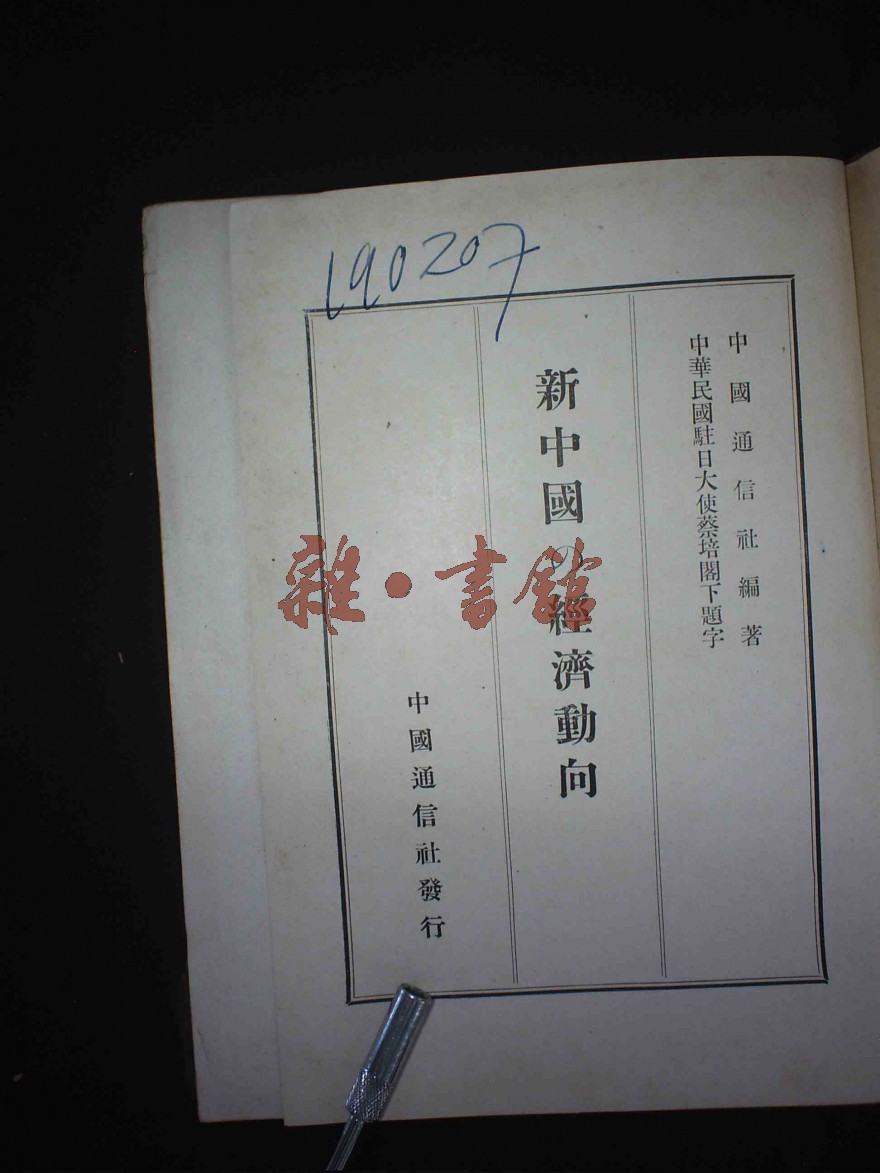 190207
中國通信社編著
中華民國駐日大使蔡培閣下題字
新中國の經濟動向
中國通信社發行
雜·書館